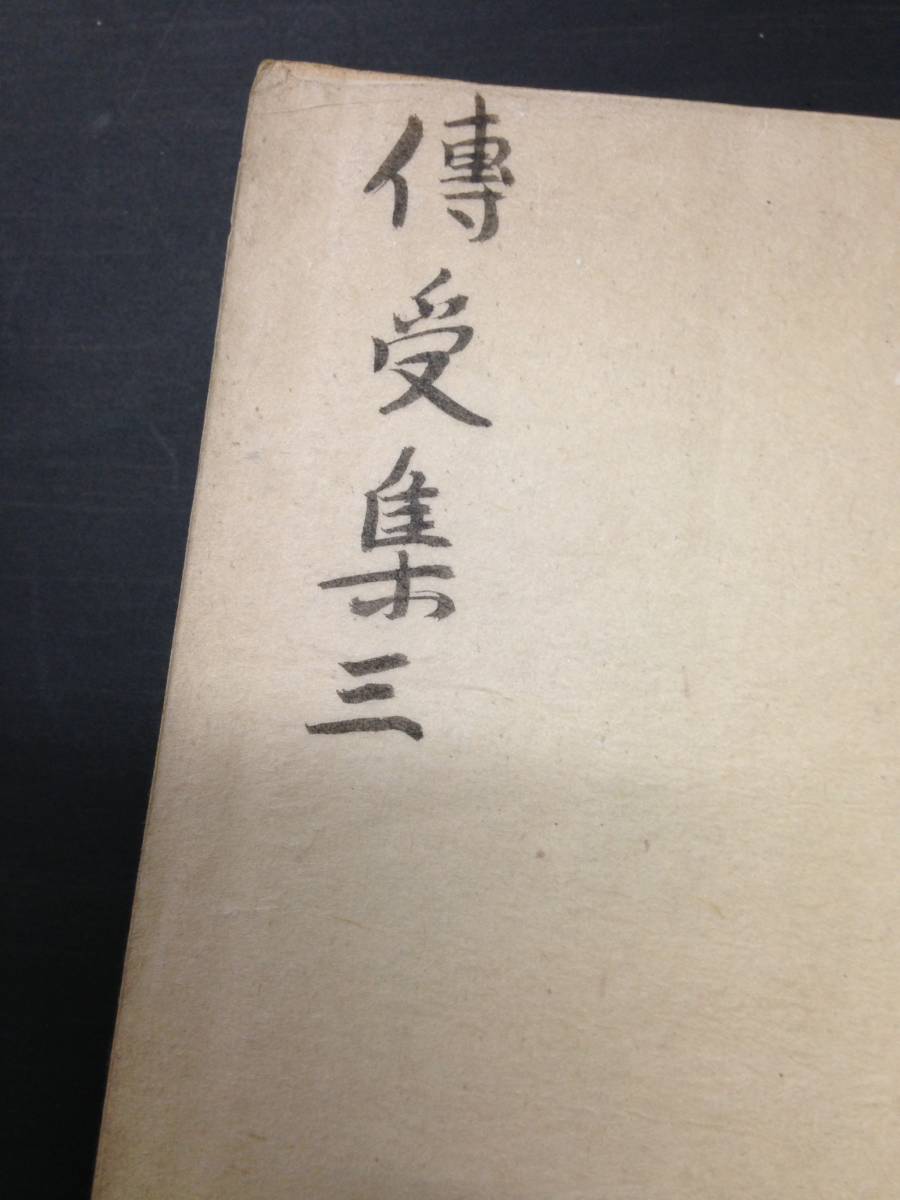 傳受集三